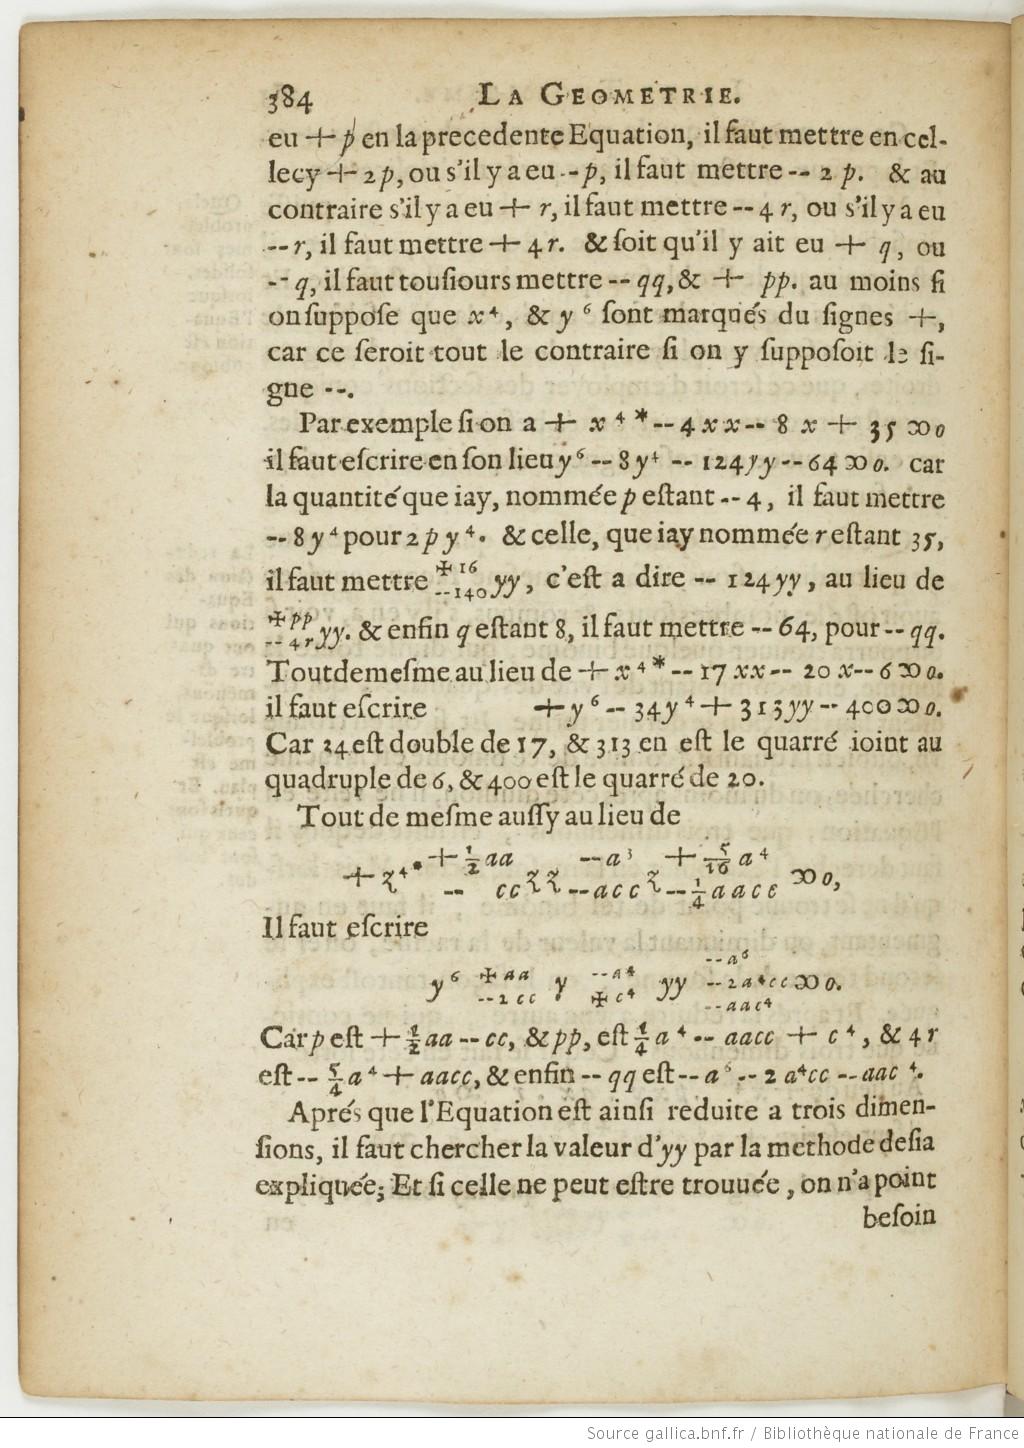 384 LA GEOMETRIE.
eu + p en la precedente Equation, il faut mettre en cel-
lecy + 2 p, ou s'il y a eu -- p, il faut mettre -- 2 p. & au
contraire s'il y a eu + r, il faut mettre -- 4 r, ou s'il y a eu
-- r, il faut mettre + 4 r. & ſoit qu'il y ait eu + q, ou
-- q, il faut touſiours mettre -- qq, & + pp. au moins ſi
on ſuppoſe que x⁴, & y⁶ ſont marqués du ſignes +,
car ce ſeroit tout le contraire ſi on y ſuppoſoit le ſi-
gne --.
Par exemple ſi on a + x⁴ * -- 4 x x -- 8 x + 35 ꝏ 0
il faut eſcrire en ſon lieu y⁶ -- 8 y⁴ -- 124 y y -- 64 ꝏ 0. car
la quantité que iay, nommée p eſtant -- 4, il faut mettre
-- 8 y⁴ pour 2 p y⁴. & celle, que iay nommée r eſtant 35,
il faut mettre ✠ 16 -- 140 yy, c'eſt a dire -- 124 yy, au lieu de
✠ pp -- 4 r yy. & enfin q eſtant 8, il faut mettre -- 64, pour -- qq.
Tout de meſme au lieu de + x⁴ * -- 17 xx -- 20 x -- 6 ꝏ 0.
il faut eſcrire + y⁶ -- 34 y⁴ + 313 yy -- 400 ꝏ 0.
Car 34 eſt double de 17, & 313 en eſt le quarré ioint au
quadruple de 6, & 400 eſt le quarré de 20.
Tout de meſme auſſy au lieu de
+ ½ aa -- a³ + 5/16 a⁴
+ z⁴ * -- cc zz -- acc z -- ¼ a a c c ꝏ 0,
Il faut eſcrire
-- a⁶
y⁶ ✠ aa -- 2 cc y ⁴ -- a⁴ ✠ c⁴ yy -- 2 a⁴ cc ꝏ 0.
-- aac⁴
Car p eſt + ½ aa -- cc, & pp, eſt ¼ a⁴ -- aacc + c⁴, & 4 r
eſt -- 5/4 a⁴ + aacc, & enfin -- qq eſt -- a⁶ -- 2 a⁴cc -- aac⁴.
Aprés que l'Equation eſt ainſi reduite a trois dimen-
ſions, il faut chercher la valeur d'yy par la methode deſia
expliquée; Et ſi celle ne peut eſtre trouuée, on n'a point
beſoin
Source gallica.bnf.fr / Bibliothèque nationale de France